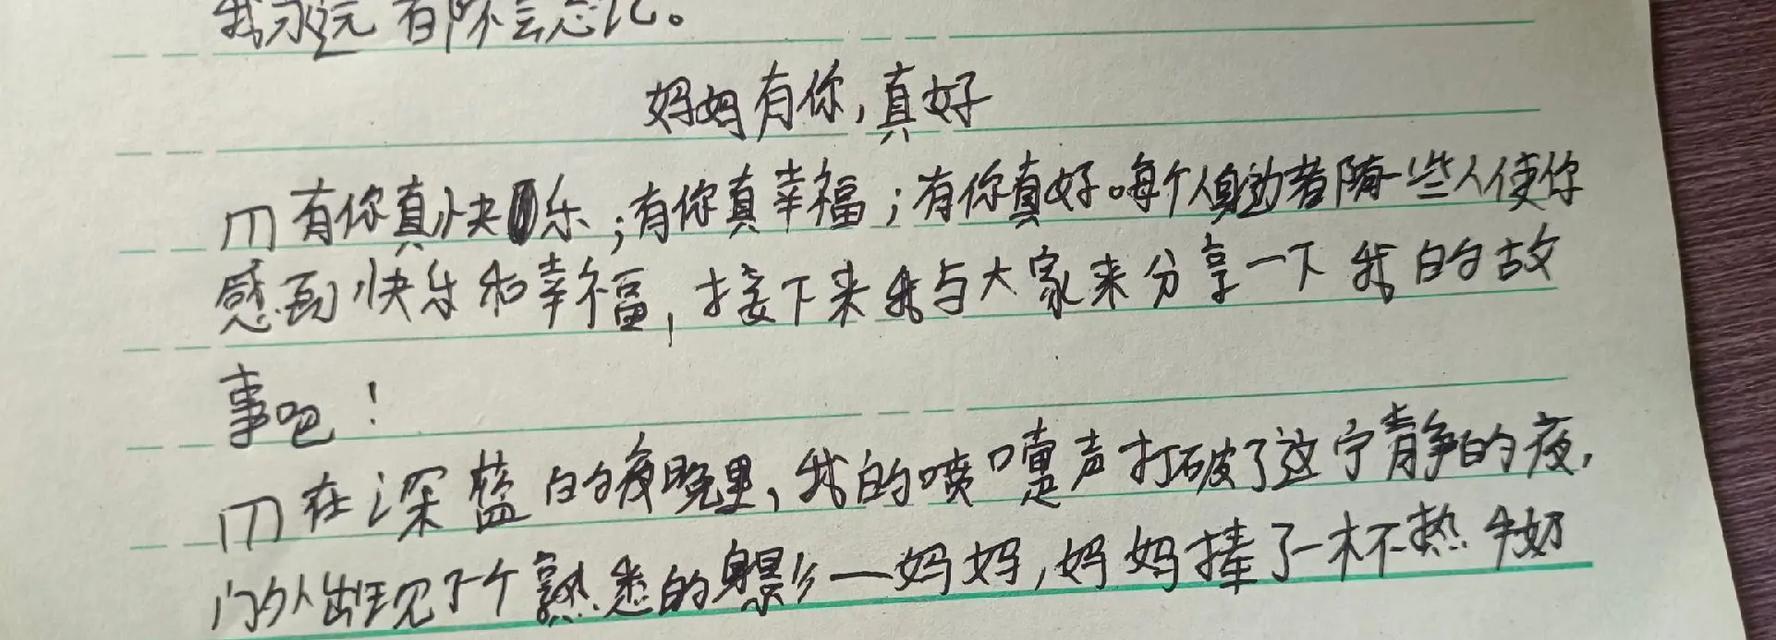 我永远都不会忘记。
妈妈有你,真好
有你真快乐;有你真幸福;有你真好。每个人身边着随一些人使你
感到快乐和幸福,接下来我与大家来分享一下我的故
事吧!
在深蓝的夜晚里,我的喷嚏声打破了这宁静的夜,
门外出现了个熟悉的身影一妈妈,妈妈捧了一杯热牛奶